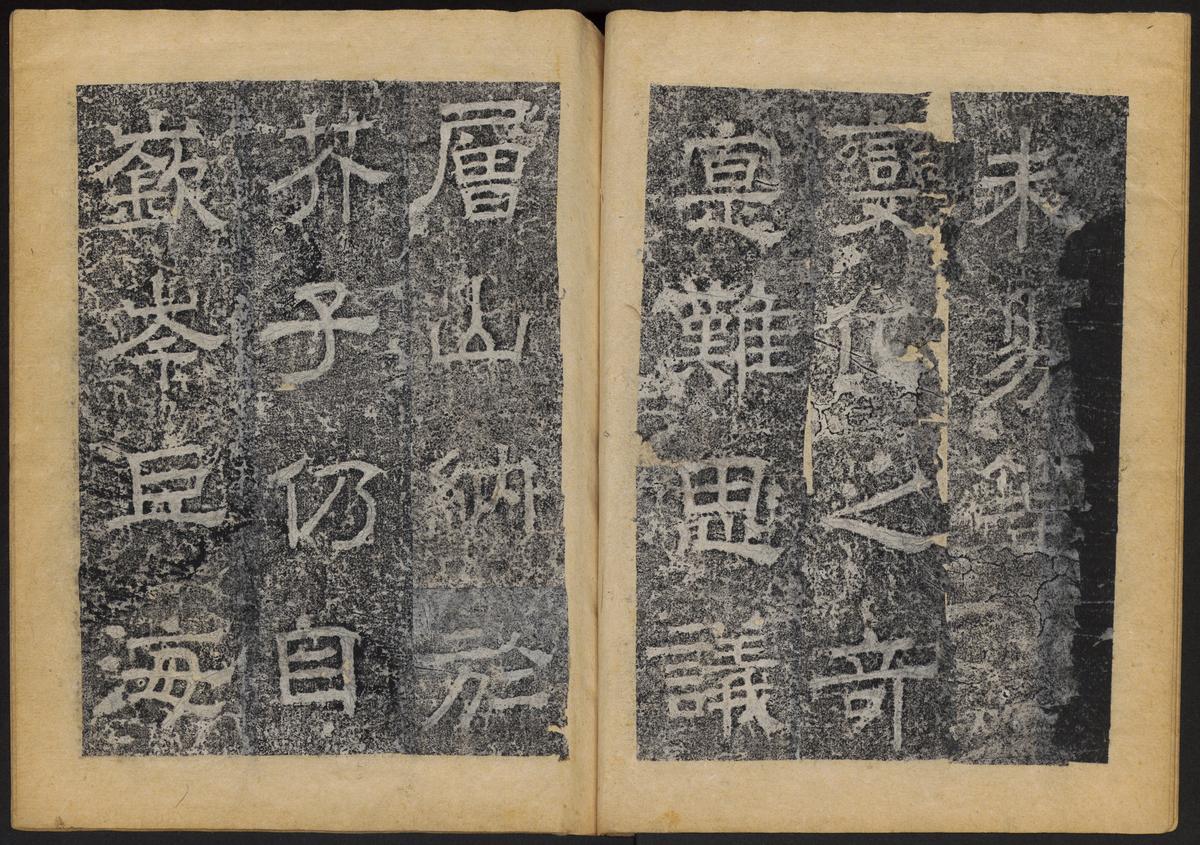 未易
變化之奇
寔難思議
層山納於
芥子仍自
嶔岑巨海